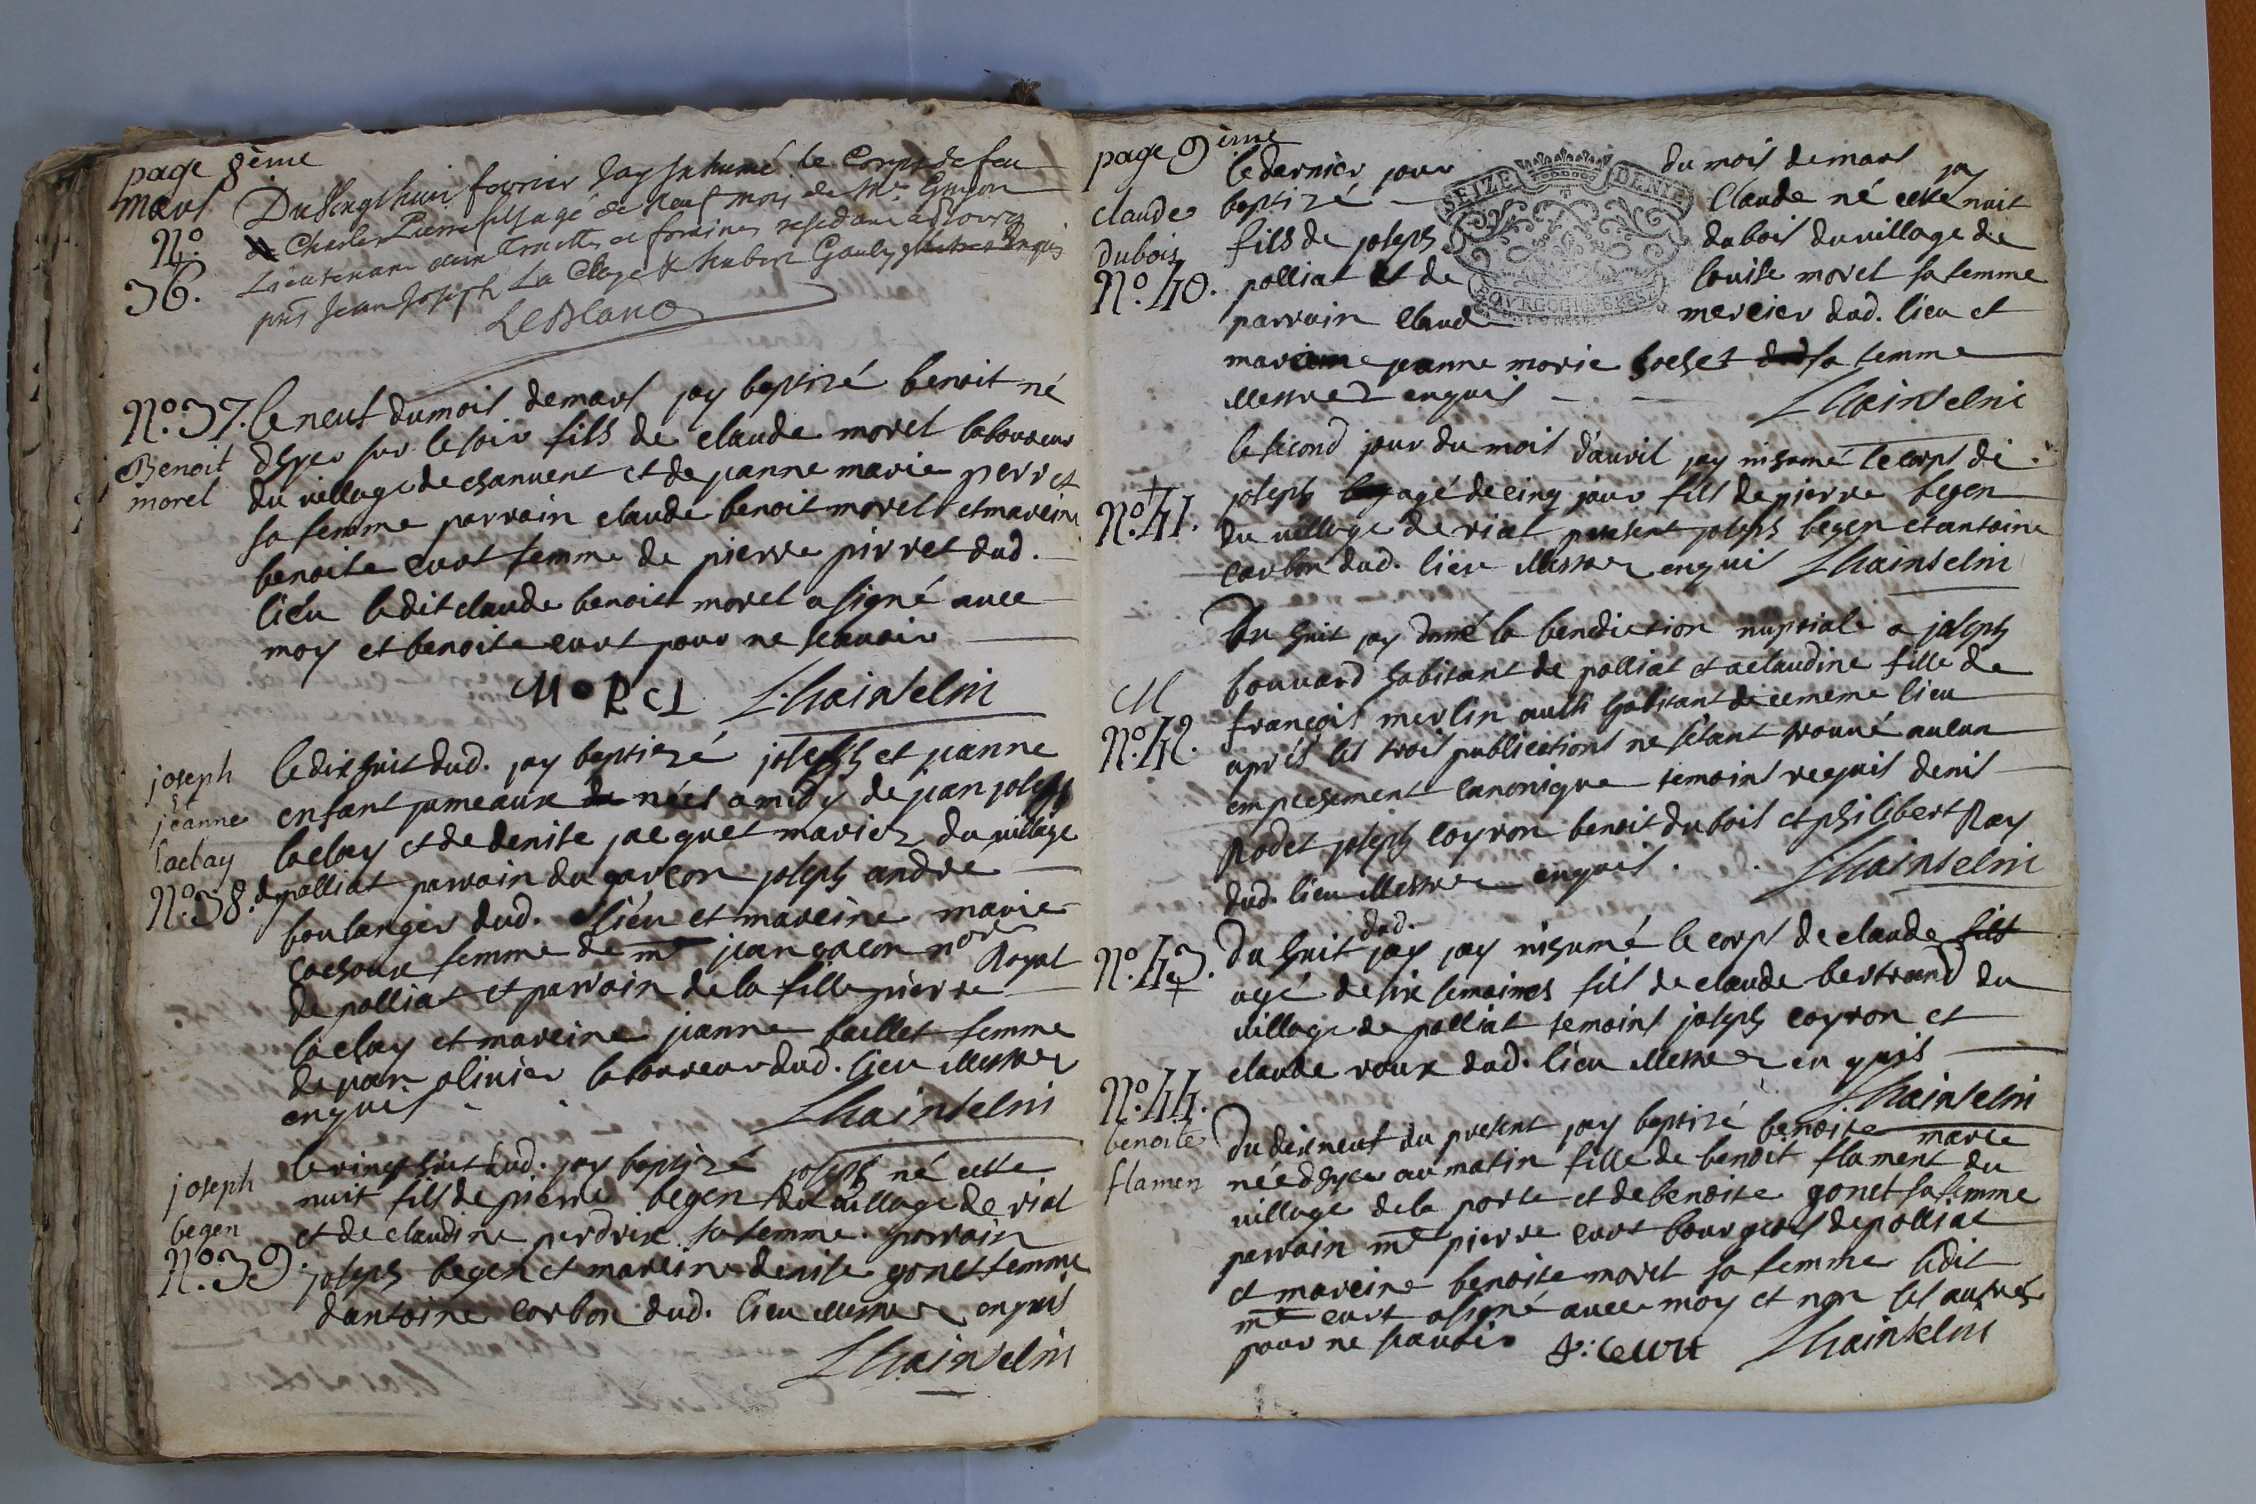 page 8ème
mars
No.
36.
Du Vingt huit fevrier Jay Inhumé le Corps de feu
Charles Pierre fils agé de Neuf mois de Mr
Lieutenant aux Traittes et foraines residant a Bourg
pnts Jean Joseph La Claye & hubert Gauly Enquis
LeBlanc
No. 37. le neuf du mois de mars jay baptizé benoit né
Benoit
morel
dhyer sur le soir fils de claude morel laboureur
du village de chanvent et de jeanne marie perret
sa femme parrain claude benoit morel et mareine
benoite curt femme de pierre pirret dud.
lieu ledit claude benoist morel a signé avec
moy et benoite curt pour ne scavoir
MoREL Lhainselin
joseph
et
jeanne
laclay
No. 38.
le dix huit dud. jay baptizé joseph et jeanne
enfant jumeaux nées a midy de jean joseph
laclay et de denise jacquet mariez du village
de polliat parrain du garcon joseph andre
boulanger dud. lieu et mareine marie
cochoux femme de me jean gacon nore Royal
de polliat et parrain de la fille pierre
laclay et mareine jeanne baillet femme
de jean olivier laboureur dud. lieu illessrez
enquis Lhainselin
joseph
begen
No. 39.
le vingt huit dud. jay baptizé joseph né cette
nuit fils de pierre begen du village de riat
et de claudine perdrix sa femme. parrain
joseph begen et mareine denise gonet femme
dantoine corbon dud. lieu illessrez enquis
Lhainselin
page 9ème
claude
dubois
No. 40.
le dernier jour du mois de mars jay
baptizé Claude né cette nuit
fils de joseph dubois du village de
polliat et de louise morel sa femme
parrain claude mercier dud. lieu et
mareine jeanne marie bochet sa femme
illessrez enquis Lhainselin
SEIZE DENIE
BOURGOGNE BRESSE
No. 41.
le second jour du mois d'avril jay inhumé le corps de
joseph agé de cinq jour fils de pierre begen
du village de riat present joseph begen et antoine
corbon dud. lieu illessrez enquis Lhainselin
M
No. 42.
Du huit jay donné la benediction nuptiale a joseph
bouvard habitant de polliat et a claudine fille de
françois merlin aussi habitant de ce meme lieu
aprés les trois publications ne sétant trouvé aucun
empechement canonique temoins requis denis
Rodet joseph coyron benoit dubois et philibert Ray
dud. lieu illessrez enquis. Lhainselin
No. 43.
Du huit dud. jay inhumé le corps de claude fils
agé de six semaines fils de claude bertrand du
village de polliat temoins joseph coyron et
claude roux dud. lieu illessrez enquis
Lhainselin
No. 44.
benoite
flamen
Du dix neuf du present jay baptizé benoite marie
née dhyer au matin fille de benoit flament du
village de la porte et de benoite gonet sa femme
parrain me pierre curt bourgeois de polliat
et mareine benoite morel sa femme ledit
me curt a signé avec moy et non les autres
pour ne scavoir P: Curt Lhainselin